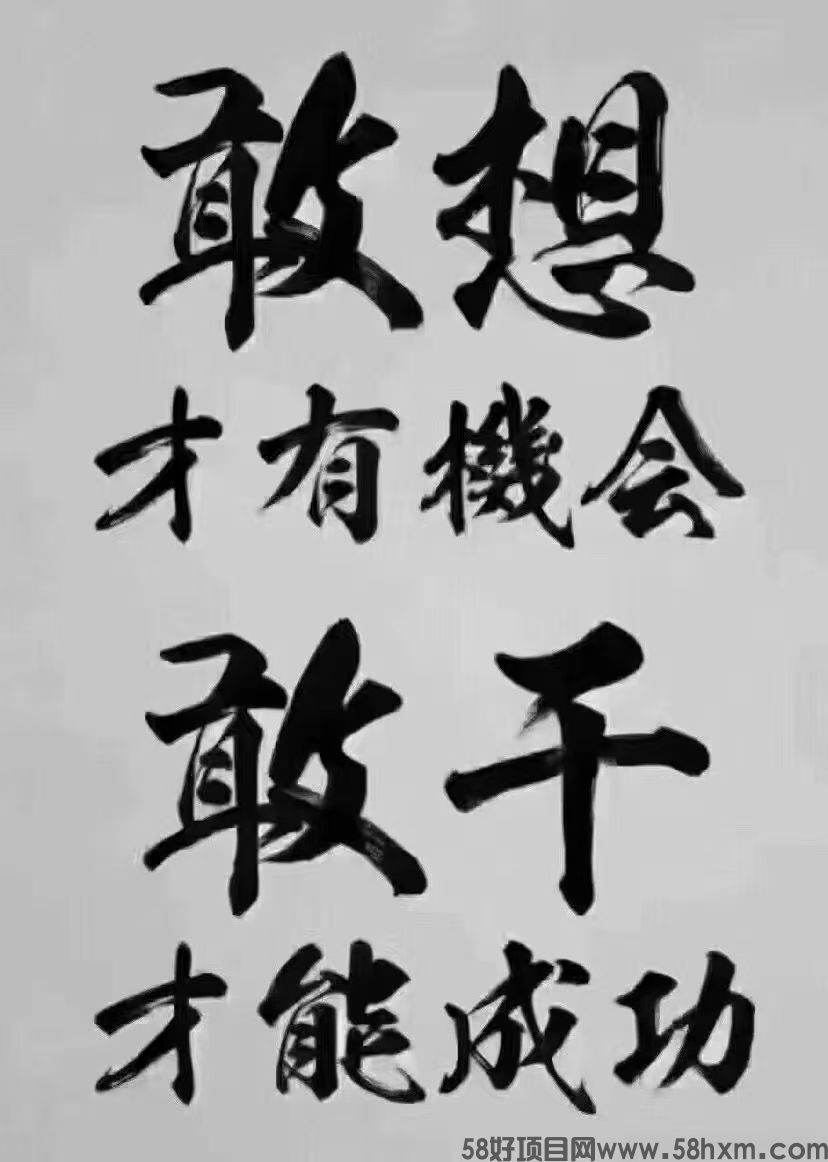 敢想
才有機会
敢干
才能成功
58好项目网www.58hxm.com